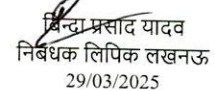 बिन्दा प्रसाद यादव
निबंधक लिपिक लखनऊ
29/03/2025